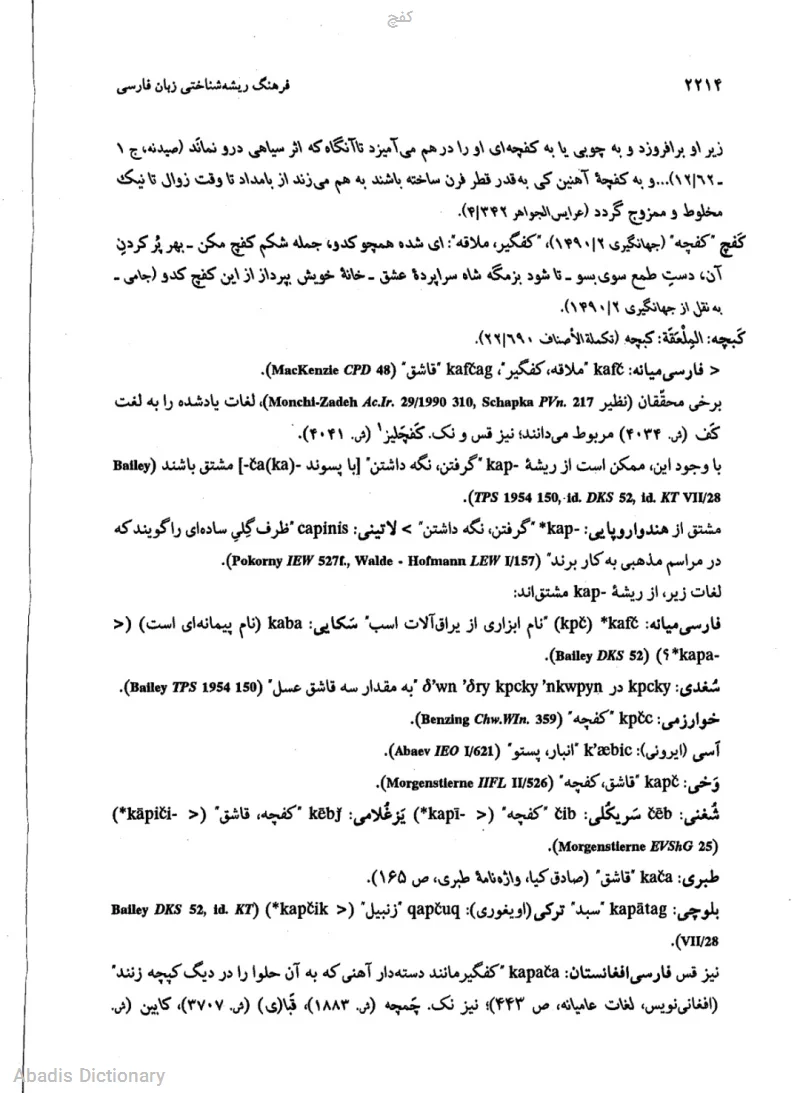 کفچ
۲۲۱۴ فرهنگ ریشه‌شناختی زبان فارسی
زیر او برافروزد و به چوبی یا به کفچه‌ای او را در هم می‌آمیزد تا آنگاه که اثر سیاهی درو نماند (صیدنه، ج ۱
ـ ۱۲/۶۲)...و به کفچهٔ آهنین کی به‌قدر قطر فرن ساخته باشند به هم می‌زند از بامداد تا وقت زوال تا نیک
مخلوط و ممزوج گردد (عرایس‌الجواهر ۴/۳۴۲).
کَفچ "کفچه" (جهانگیری ۱۴۹۰/۲)، "کفگیر، ملاقه": ای شده همچو کدو، جمله شکم کفچ مکن ـ بهر پُر کردنِ
آن، دستِ طمع سوی‌بسو ـ تا شود بزمگه شاه سراپردهٔ عشق ـ خانهٔ خویش بپرداز از این کفچ کدو (جامی ـ
به نقل از جهانگیری ۱۴۹۰/۲).
کَبچه: المِلْعَقَة: کبچه (تکملة‌الأصناف ۲۲/۶۹۰).
< فارسی‌میانه: kafč "ملاقه، کفگیر"، kafčag "قاشق" (MacKenzie CPD 48).
برخی محقّقان (نظیر Monchi-Zadeh Ac.Ir. 29/1990 310, Schapka PVn. 217)، لغات یادشده را به لغت
کَف (ش. ۴۰۳۴) مربوط می‌دانند؛ نیز قس و نک. کَفچَلیز۱ (ش. ۴۰۴۱).
با وجود این، ممکن است از ریشهٔ kap- "گرفتن، نگه داشتن" [با پسوند -ča(ka)-] مشتق باشند (Bailey
TPS 1954 150, id. DKS 52, id. KT VII/28).
مشتق از هندواروپایی: *kap- "گرفتن، نگه داشتن" > لاتینی: capinis "ظرف گِلیِ ساده‌ای را گویند که
در مراسم مذهبی به کار برند" (Pokorny IEW 527f., Walde - Hofmann LEW I/157).
لغات زیر، از ریشهٔ kap- مشتق‌اند:
فارسی‌میانه: *kafč (kpč) "نام ابزاری از یراق‌آلات اسب" سَکایی: kaba (نام پیمانه‌ای است) (<
*kapa-؟) (Bailey DKS 52).
سُغدی: kpcky در δ’wn ’δry kpcky ’nkwpyn "به مقدار سه قاشق عسل" (Bailey TPS 1954 150).
خوارزمی: kpčc "کفچه" (Benzing Chw.WIn. 359).
آسی (ایرونی): k’æbic "انبار، پستو" (Abaev IEO I/621).
وَخی: kapč "قاشق، کفچه" (Morgenstierne IIFL II/526).
شُغنی: čēb سَریکُلی: čib "کفچه" (< *kapī-) یَزغُلامی: kēbǰ "کفچه، قاشق" (< *kāpiči-)
(Morgenstierne EVShG 25).
طبری: kača "قاشق" (صادق کیا، واژه‌نامهٔ طبری، ص ۱۶۵).
بلوچی: kapātag "سبد" ترکی(اویغوری): qapčuq "زنبیل" (< *kapčik) (Bailey DKS 52, id. KT
VII/28).
نیز قس فارسی‌افغانستان: kapača "کفگیرمانند دسته‌دار آهنی که به آن حلوا را در دیگ کپچه زنند"
(افغانی‌نویس، لغات عامیانه، ص ۴۴۳)؛ نیز نک. چَمچه (ش. ۱۸۸۳)، قَبا(ی) (ش. ۳۷۰۷)، کابین (ش.
Abadis Dictionary